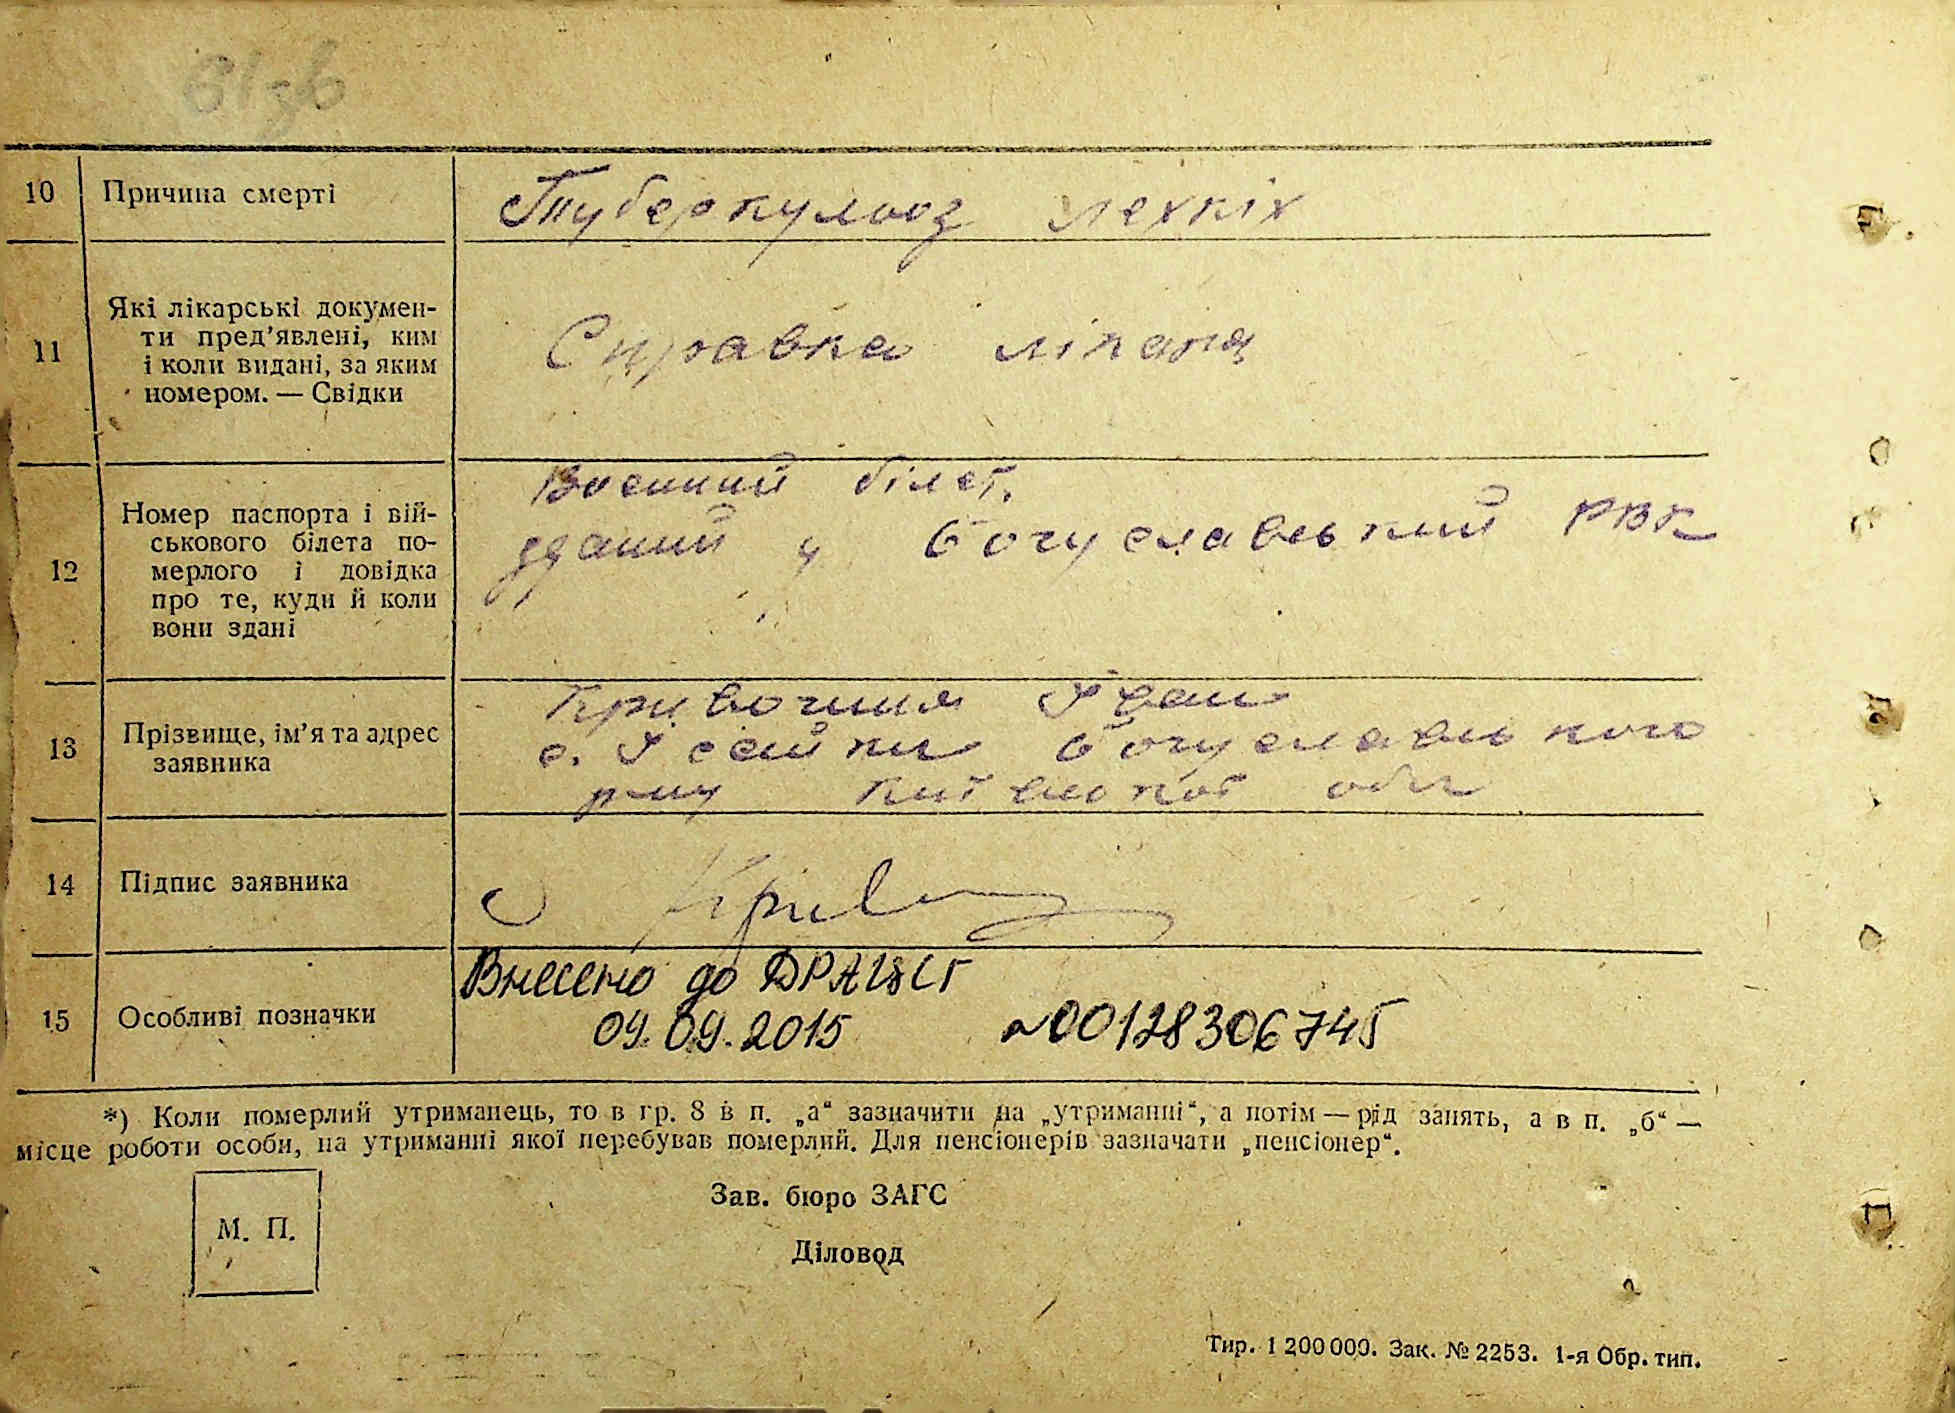 10 Причина смерті Туберкульоз лехкіх
11 Які лікарські докумен-
ти пред'явлені, ким
і коли видані, за яким
номером. — Свідки
Справка лікаря
12 Номер паспорта і вій-
ськового білета по-
мерлого і довідка
про те, куди й коли
вони здані
Воєнний білєт,
зданий у Богуславський РВК
13 Прізвище, ім'я та адрес
заявника
Кривочиня Іван
с. Ісайки Богуславського
р-ну Київської обл
14 Підпис заявника
15 Особливі позначки
Внесено до ДРАЦСГ
09.09.2015 №00128306745
*) Коли померлий утриманець, то в гр. 8 в п. „а“ зазначити на „утриманні“, а потім — рід занять, а в п. „б“ —
місце роботи особи, на утриманні якої перебував померлий. Для пенсіонерів зазначати „пенсіонер“.
М. П.
Зав. бюро ЗАГС
Діловод
Тир. 1 200 000. Зак. № 2253. 1-я Обр. тип.